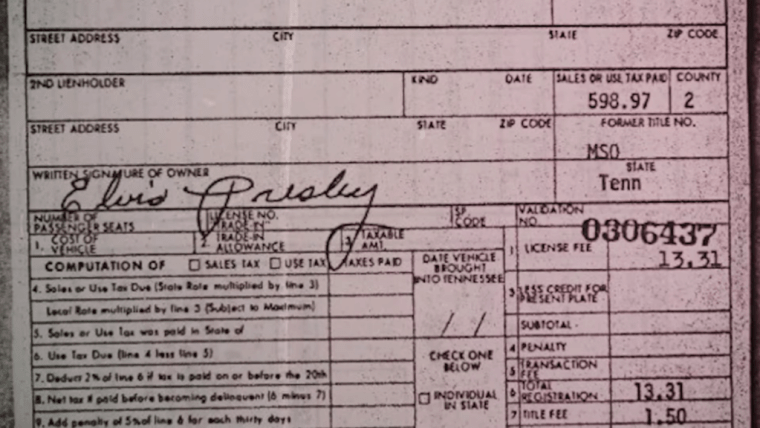 STREET ADDRESS CITY STATE ZIP CODE
2ND LIENHOLDER KIND DATE SALES OR USE TAX PAID COUNTY
598.97 2
STREET ADDRESS CITY STATE ZIP CODE FORMER TITLE NO.
MSO
WRITTEN SIGNATURE OF OWNER STATE
Elvis Presley Tenn
NUMBER OF PASSENGER SEATS LICENSE NO. TRADE-IN SP. CODE VALIDATION NO. 0306437
1. COST OF VEHICLE 2. TRADE-IN ALLOWANCE 3. TAXABLE AMT. 1 LICENSE FEE 13.31
COMPUTATION OF SALES TAX USE TAX TAXES PAID DATE VEHICLE BROUGHT INTO TENNESSEE
4. Sales or Use Tax Due (State Rate multiplied by line 3) 3 LESS CREDIT FOR PRESENT PLATE
Local Rate multiplied by line 3 (Subject to Maximum) / /
5. Sales or Use Tax was paid in State of SUBTOTAL -
6. Use Tax Due (line 4 less line 5) CHECK ONE BELOW 4 PENALTY
7. Deduct 2% of line 6 if tax is paid on or before the 20th 5 TRANSACTION FEE
8. Net tax if paid before becoming delinquent (6 minus 7) INDIVIDUAL IN STATE 6 TOTAL REGISTRATION 13.31
9. Add penalty of 5% of line 6 for each thirty days 7 TITLE FEE 1.50